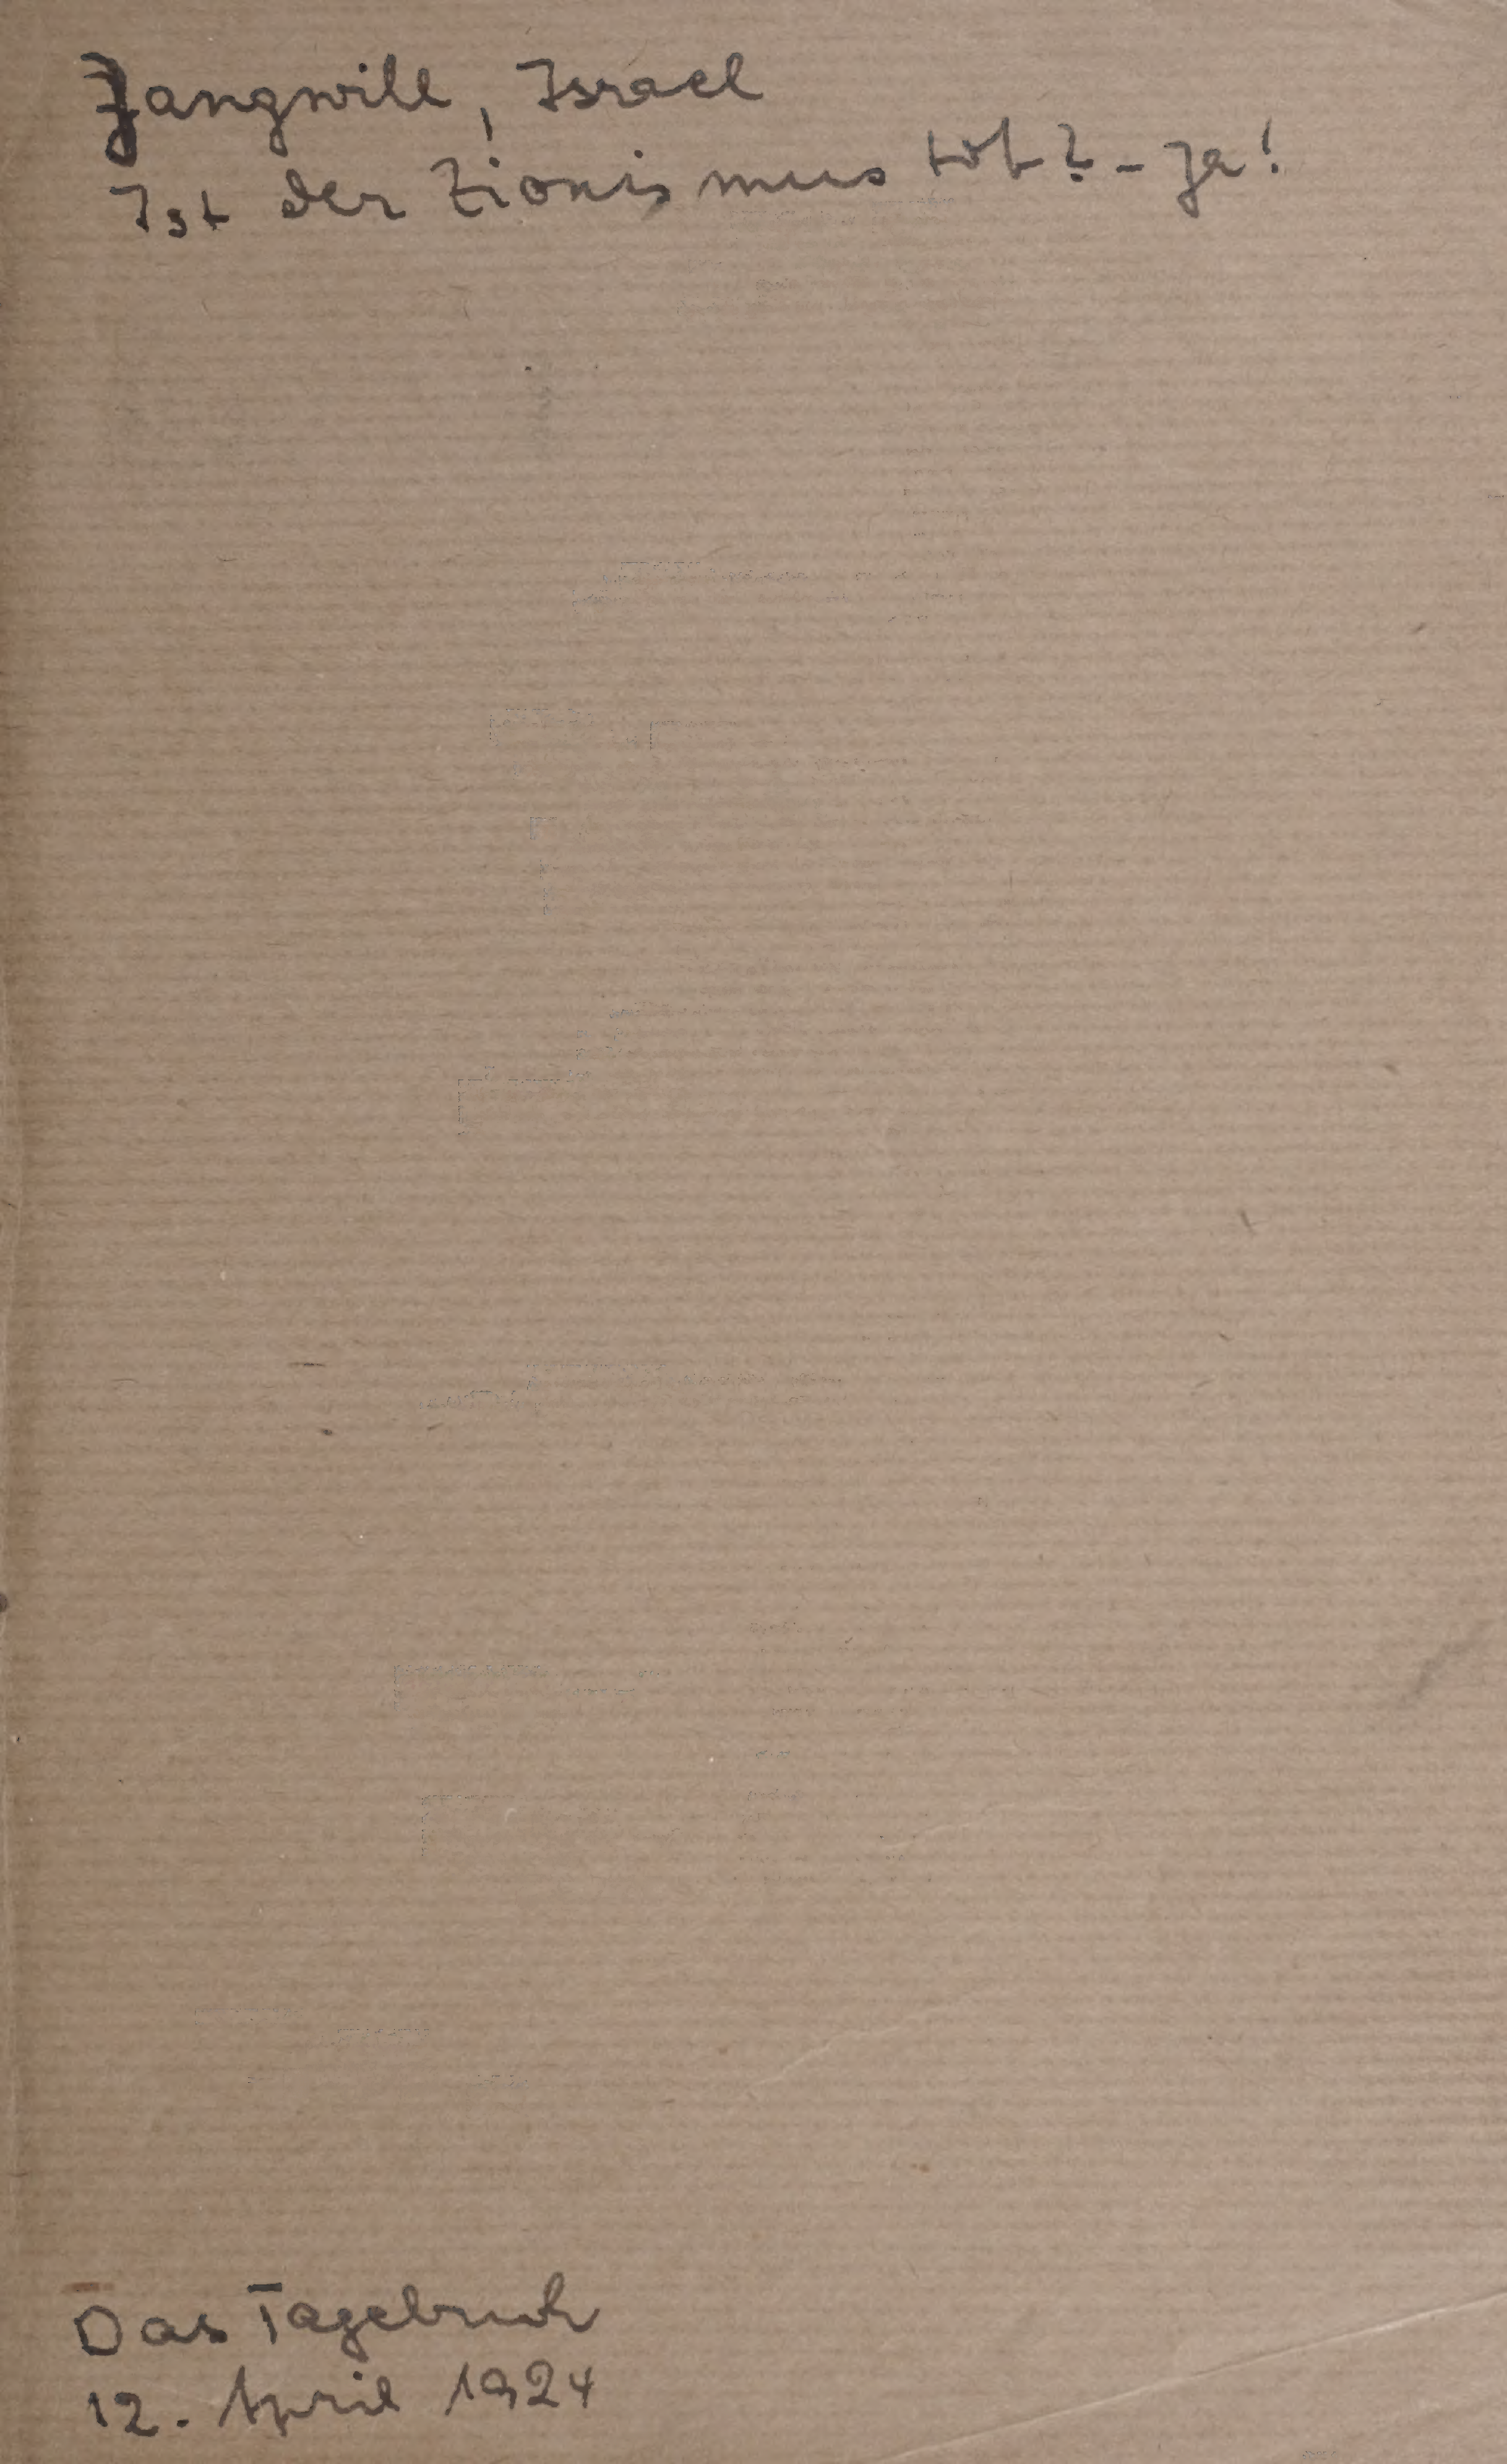 Zangwill, Israel
Ist der Zionismus tot? - Ja!
Das Tagebuch
12. April 1924